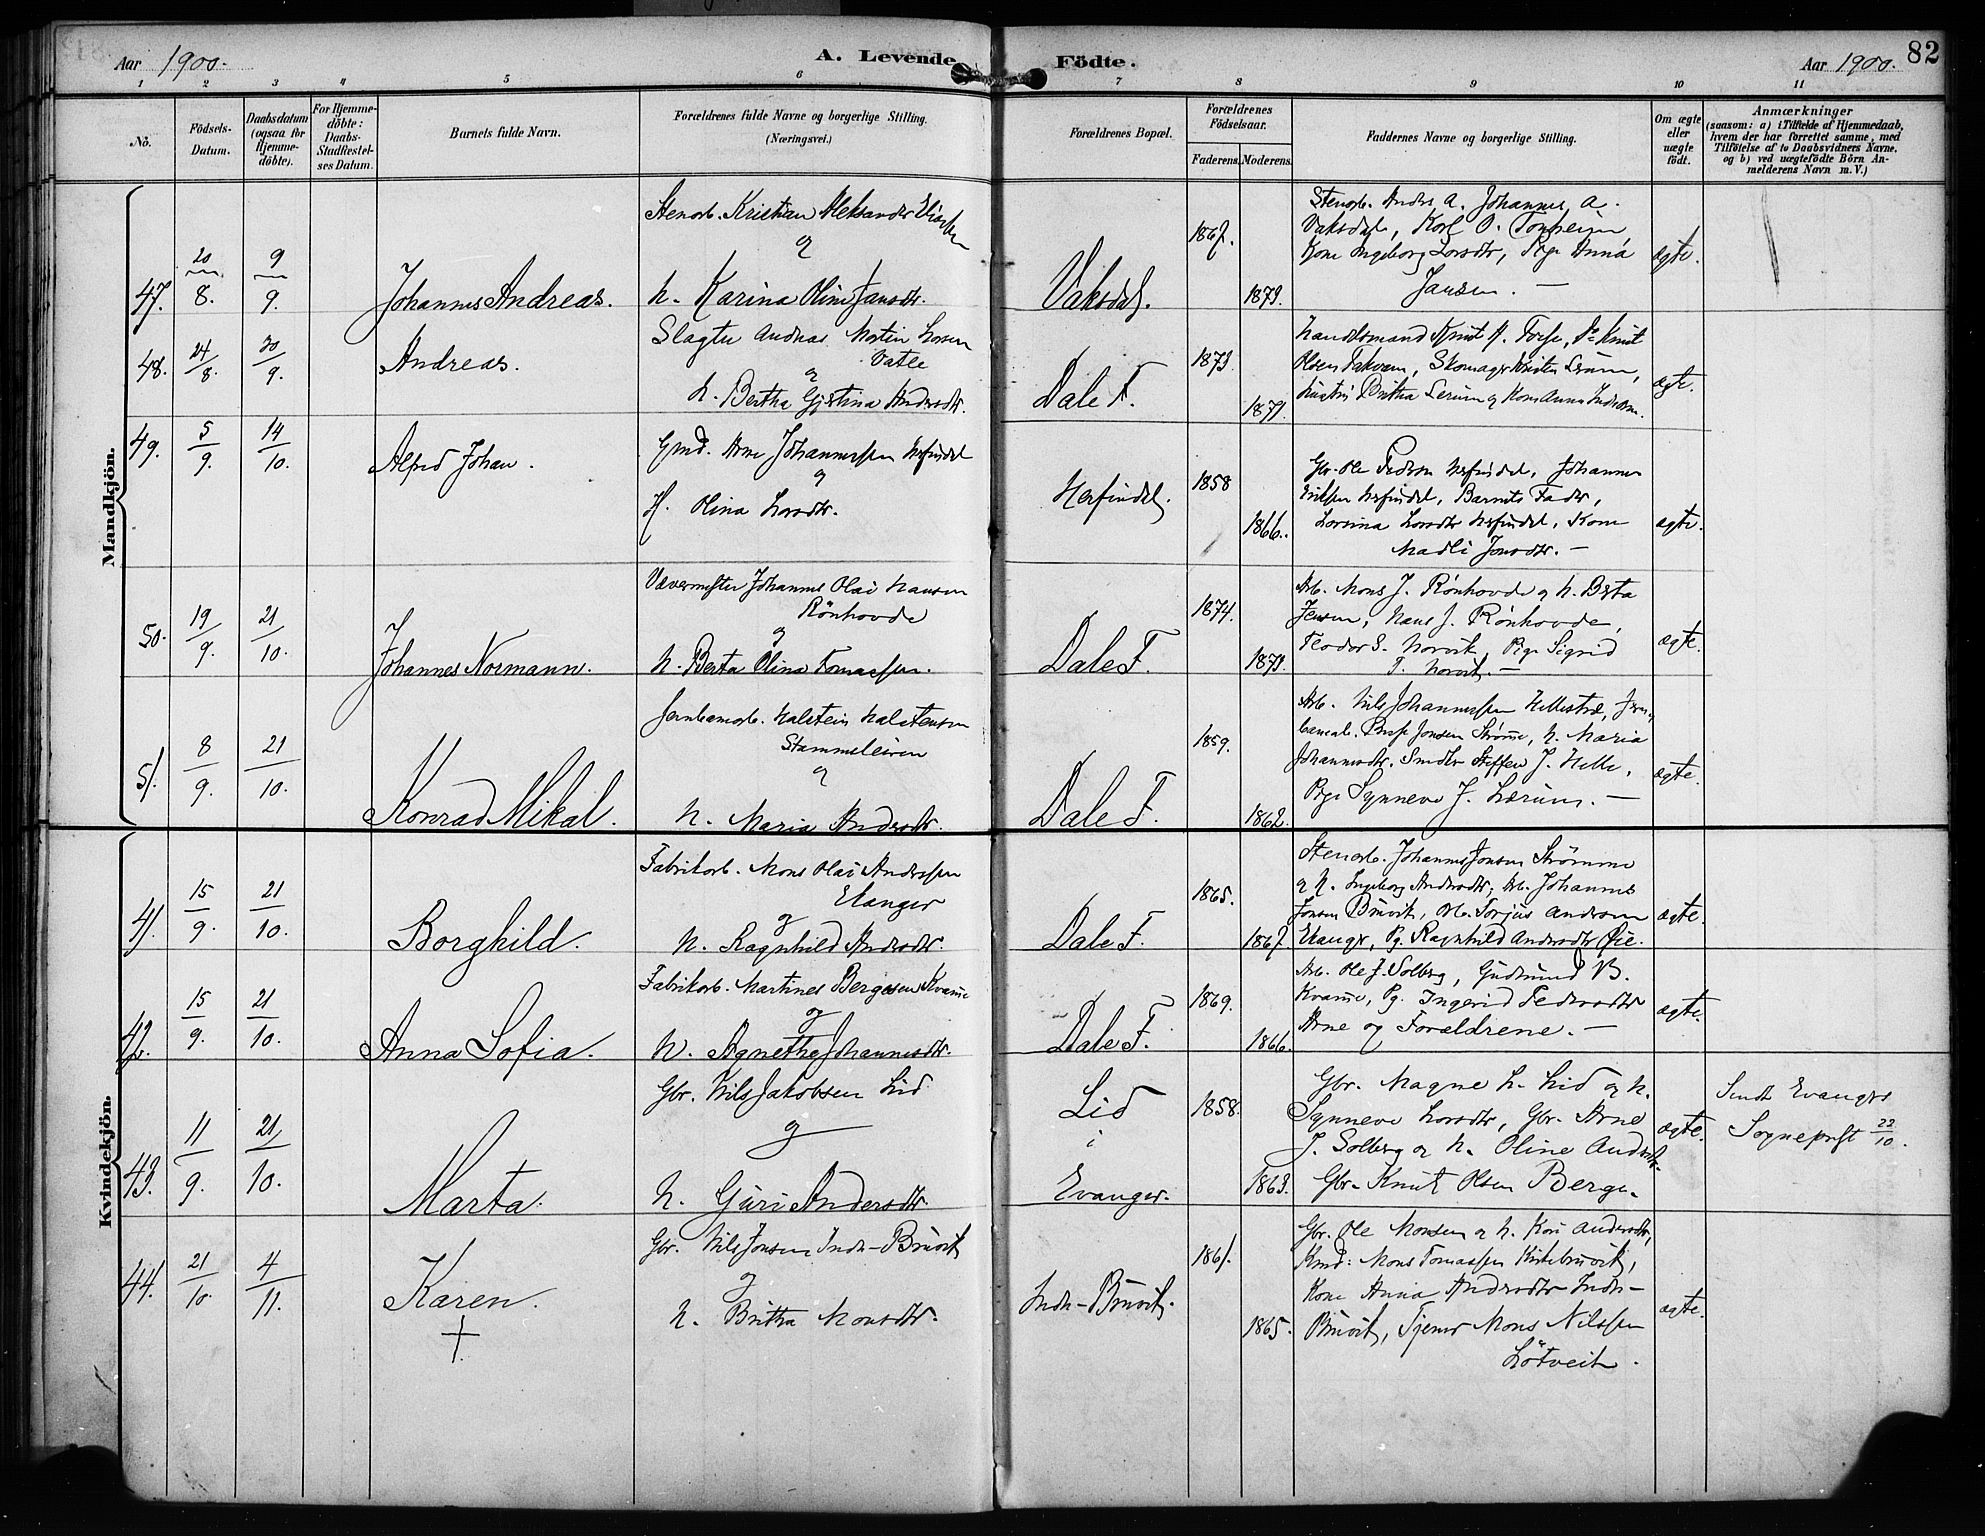 Aar 1900.
A. Levende
Födte.
Aar 1900.
82
1 2 3 4 5 6 7 8 9 10 11
No.
Födsels-
Datum.
Daabsdatum
(ogsaa for
Hjemme-
döbte).
For Hjemme-
döbte:
Daabs-
Stadfæstel-
ses Datum.
Barnets fulde Navn.
Forældrenes fulde Navne og borgerlige Stilling.
(Næringsvei.)
Forældrenes Bopæl.
Forældrenes
Födselsaar.
Faderens. Moderens.
Faddernes Navne og borgerlige Stilling.
Om ægte
eller
uægte
födt.
Anmærkninger
(saasom: a) i Tilfælde af Hjemmedaab,
hvem der har forrettet samme, med
Tilföielse af to Daabsvidners Navne,
og b) ved uægtefödte Börn An-
melderens Navn m. V.)
Mandkjön.
47. 20/8. 9/9.
Johannes Andreas.
Stenarb. Kristian Aleksander
og
H. Karina Oline Jansdtr.
Vaksdal.
1867.
1873.
Stenarb. Andrs A. Johannes A.
Vaksdal, Karl O. Tonheim
Kone Ingeborg Larsdtr, Pige Anna
Jansen. —
ægte.
48. 24/8. 30/9.
Andreas.
Slagter Andreas Martin Larsen
Vatle
og
H. Bertha Gjertina Andersdtr.
Dale F.
1873.
1871.
Handelsmand Knut A. Fosse, Do Knut
Olsen Dakvam, Skomager Kristen Lerum,
Britha Lerum og Kone Anna
ægte.
49. 5/9. 14/10.
Alfred Johan.
Gmd. Arne Johannessen Herfindal
og
H. Olina Larsdtr.
Herfindal.
1858
1866.
Gbr. Ole Pederson Herfindal, Johannes
Eriksen Herfindal, Barnets Fader,
Lovina Larsdtr Herfindal, Kone
Madli Jonsdtr. —
ægte.
50. 19/9. 21/10.
Johannes Normann.
Vævermester Johannes Olai Hansen
Rönhovde
og
H. Berta Olina Tomassen.
Dale F.
1874.
1873.
Arb. Mons J. Rönhovde og H. Berta
Jensen, Hans J. Rönhovde,
Teodor S. Norvik, Pige Sigrid
T. Norvik. —
ægte.
51. 8/9. 21/10.
Konrad Mikal.
Jernbanearb. Halstein Halstensen
Stammeleiren
og
H. Maria Andersdtr.
Dale F.
1859.
1862.
Arb. Nils Johannessen Hellestræ, Jern-
banearb. Jonsen Strømme, H. Maria
Johannesdtr. Smeder Steffen J. Helle,
Pige Synneve J. Lærum. —
ægte.
Kvindekjön.
41. 15/9. 21/10.
Borghild.
Fabrikarb. Mons Olai Anderssen
Evanger
og
H. Ragnhild Andersdtr.
Dale F.
1865.
1867.
Stenarb. Johannes Jonsen Strømme
og H. Ingeborg Andersdtr; Arb. Johannes
Jonsen Bruvik, Arb. Torjus Andersen
Evanger, Pg. Ragnhild Andersdtr Øie.
ægte.
42. 15/9. 21/10.
Anna Sofia.
Fabrikarb. Martines Bergesen Kvamme
og
H. Agnethe Johannesdtr.
Dale F.
1869.
1866.
Arb. Ole J. Solberg, Gudmund B.
Kvamme, Pg. Ingerid Pedersdtr
Arne og Forældrene. —
ægte.
43. 11/9. 21/10.
Marta.
Gbr. Nils Jakobsen Lid
og
H. Guri Andersdtr.
Lid
i
Evanger.
1858.
1863.
Gbr. Magne L. Lid og H.
Synneve Larsdtr, Gbr. Arne
J. Solberg og H. Oline Andersdtr
Gbr. Knut Olsen Berge.
ægte.
Sendt Evangers
Sogneprest 22/10.
44. 21/10. 4/11.
Karen.
Gbr. Nils Jonsen Indr-Bruvik
og
H. Britha Monsdtr.
Indr-Bruvik.
1861.
1865.
Gbr. Ole Monsen og H. Kari Andersdtr,
Kmd: Mons Tomassen Kirkebruvik,
Kone Anna Andersdtr Indr-
Bruvik, Tjener Mons Nilssen
Lötveit.
ægte.